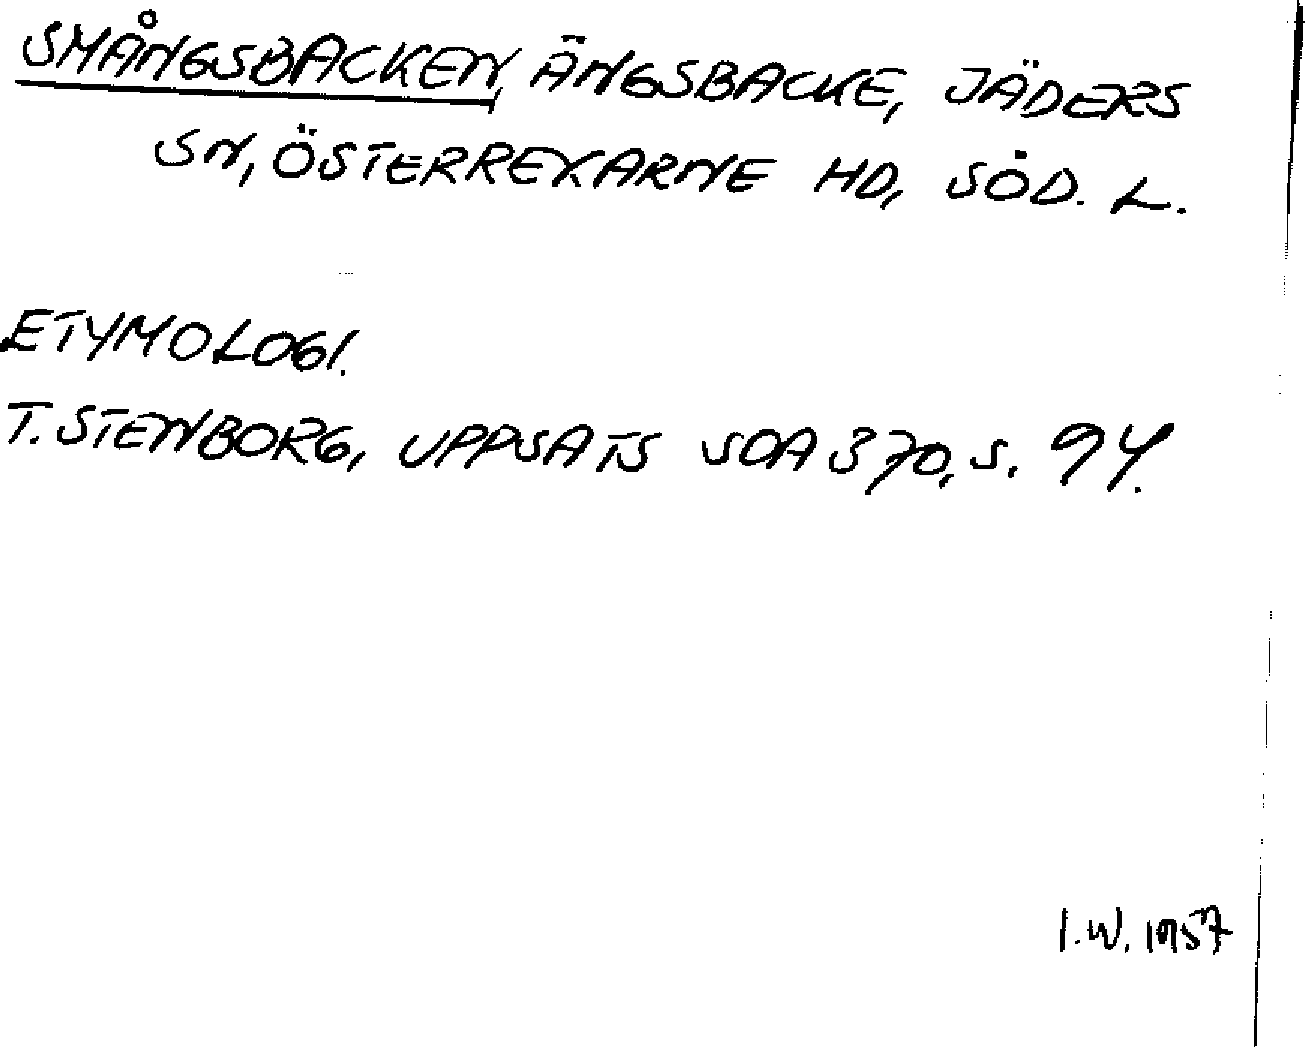 SMÅNGSBACKEN, ÄNGSBACKE, JÄDERS
SN, ÖSTERREKARNE HD, SÖD. L.
ETYMOLOGI.
T. STENBORG, UPPSATS SOA 370, S. 94.
I.W. 1957